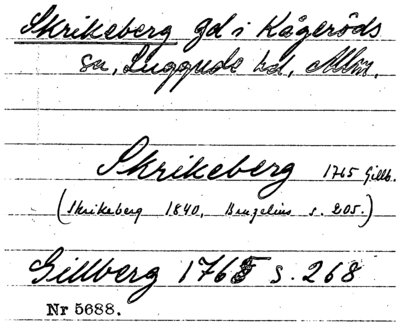 Skrikeberg gd i Kågeröds
sn, Luggude hd, Mlm.
Skrikeberg 1765 Gillb.
(Skrikeberg 1840, Bruzelius s. 205.)
Gillberg 1765 s. 268
Nr 5688.